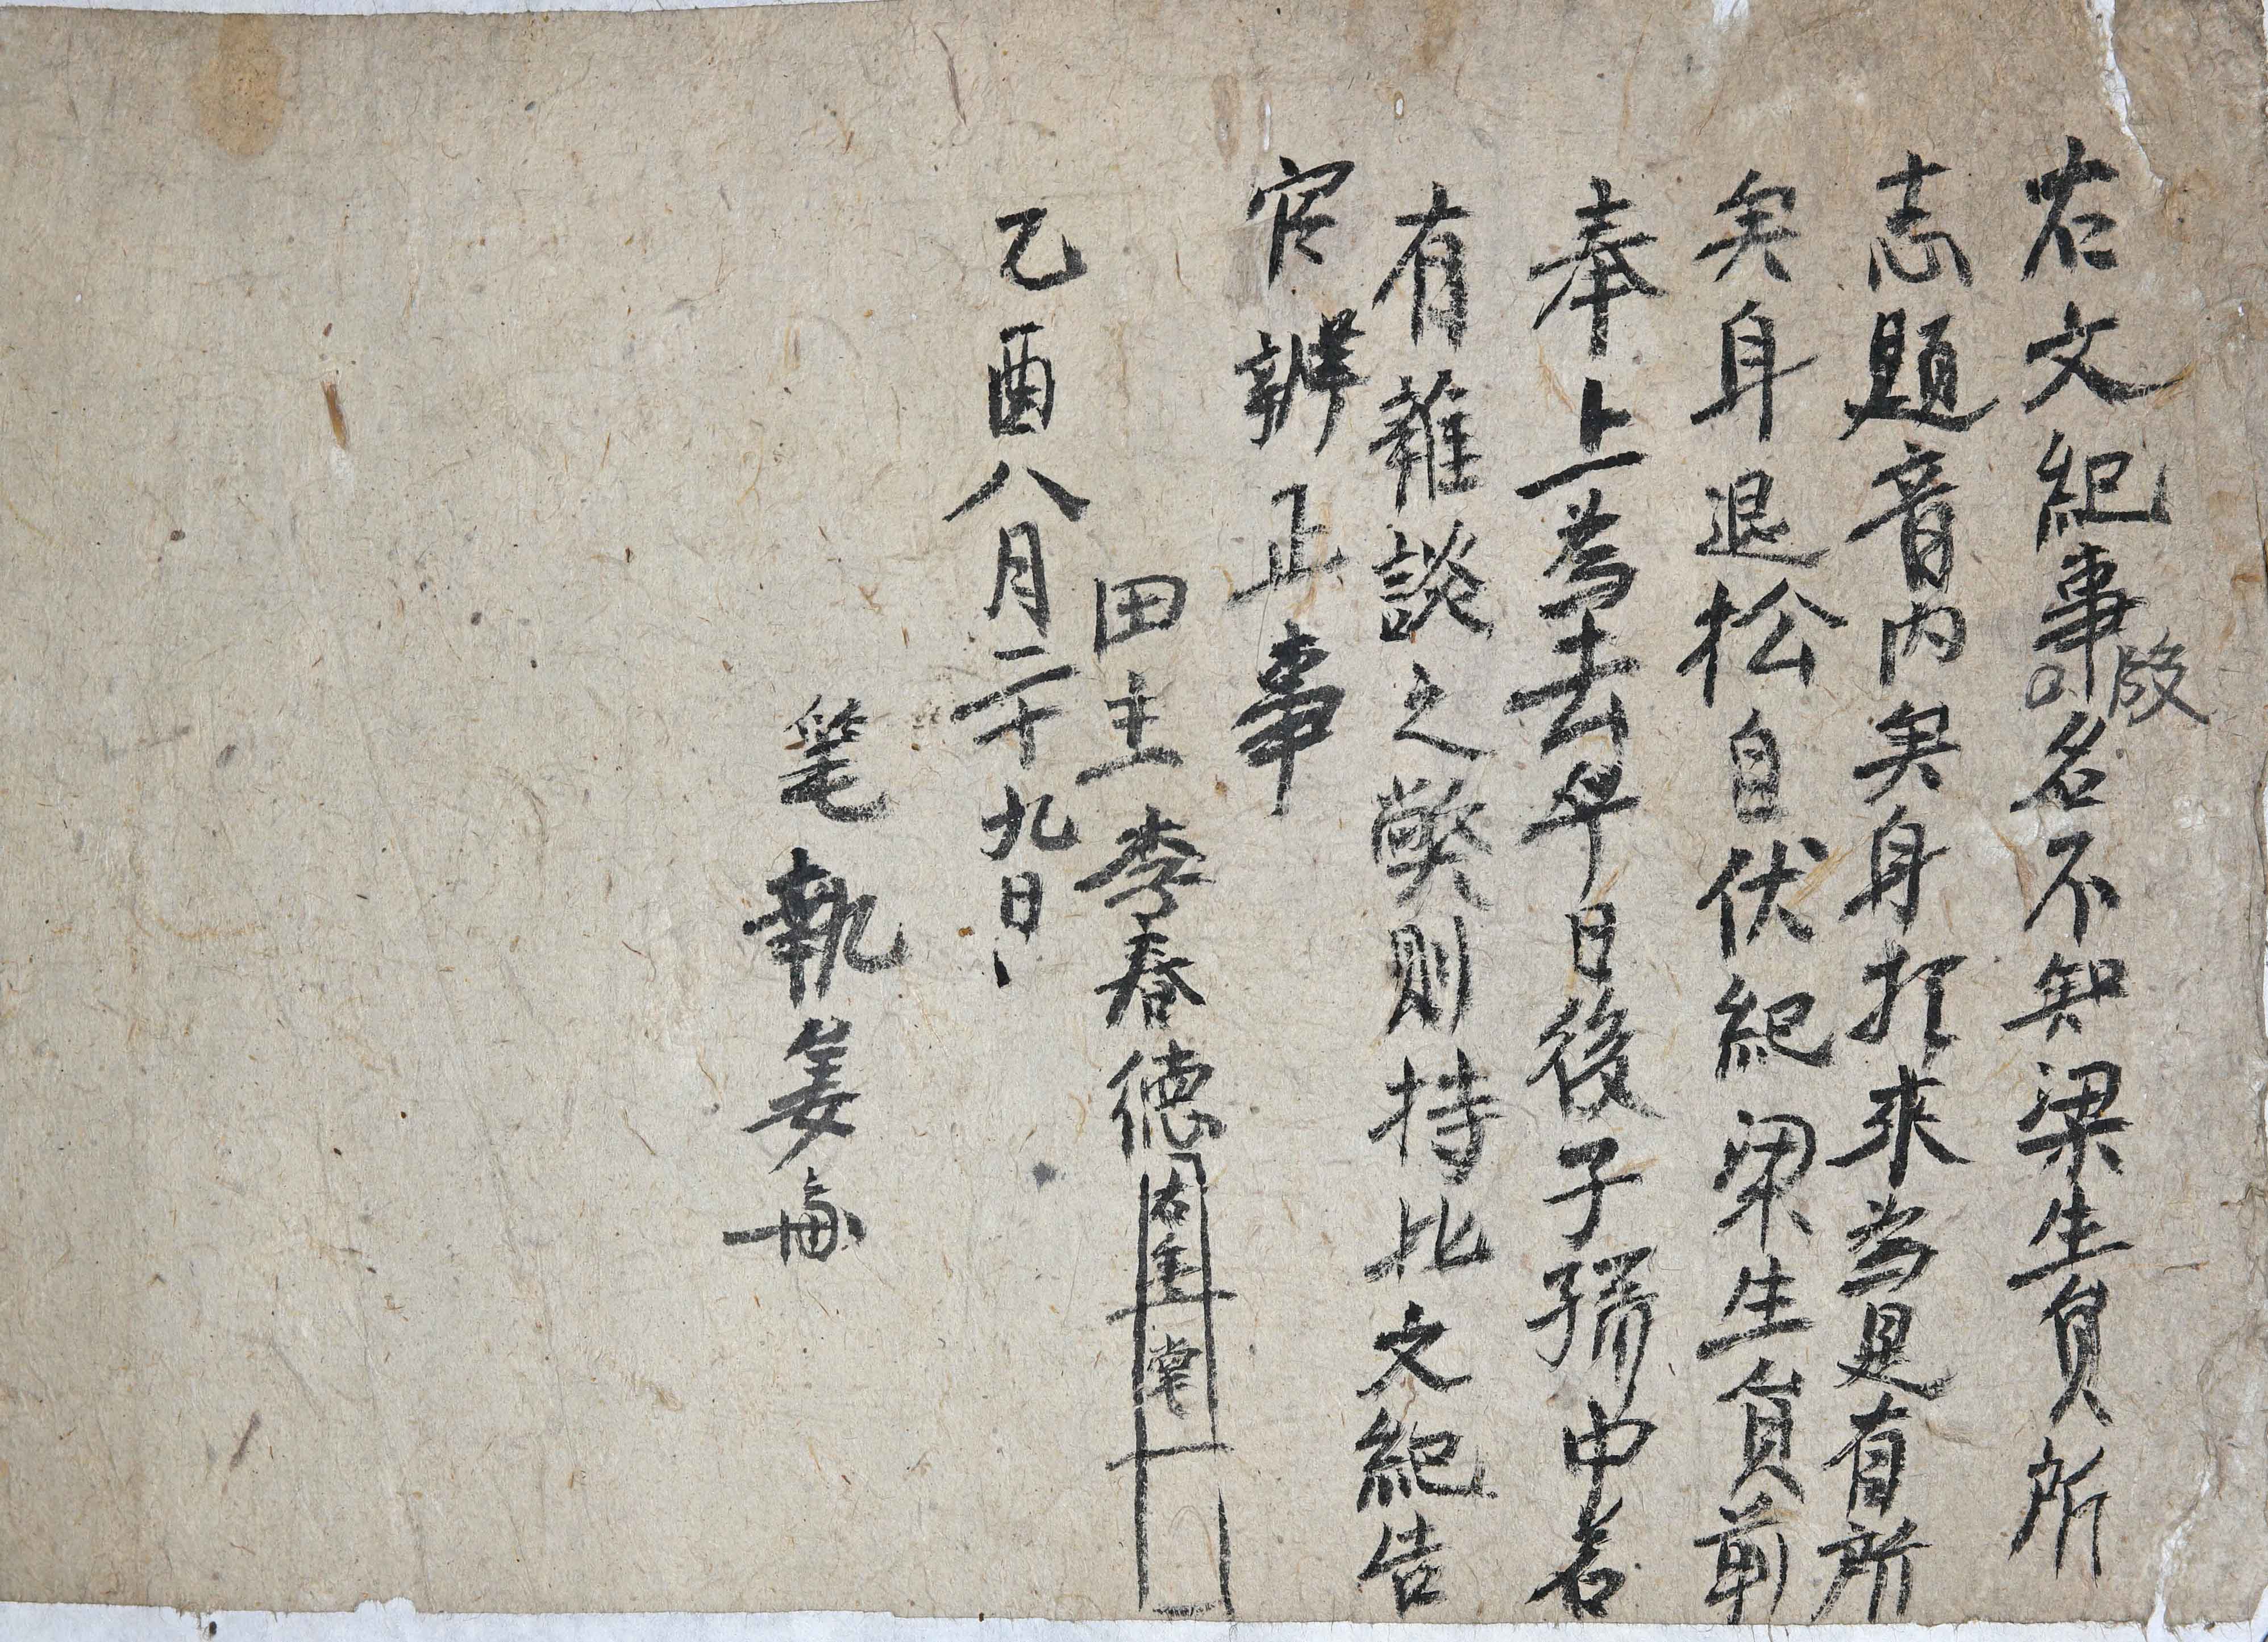 右文紀事段名不知梁生員所
志題音內矣身捉來當是有所
矣身退松自伏紀梁生員前
奉上爲去乎日後子孫中若
有雜談之弊則持比文紀告
官辨正事
田主李春德右手掌
乙酉八月二十九日
筆執姜